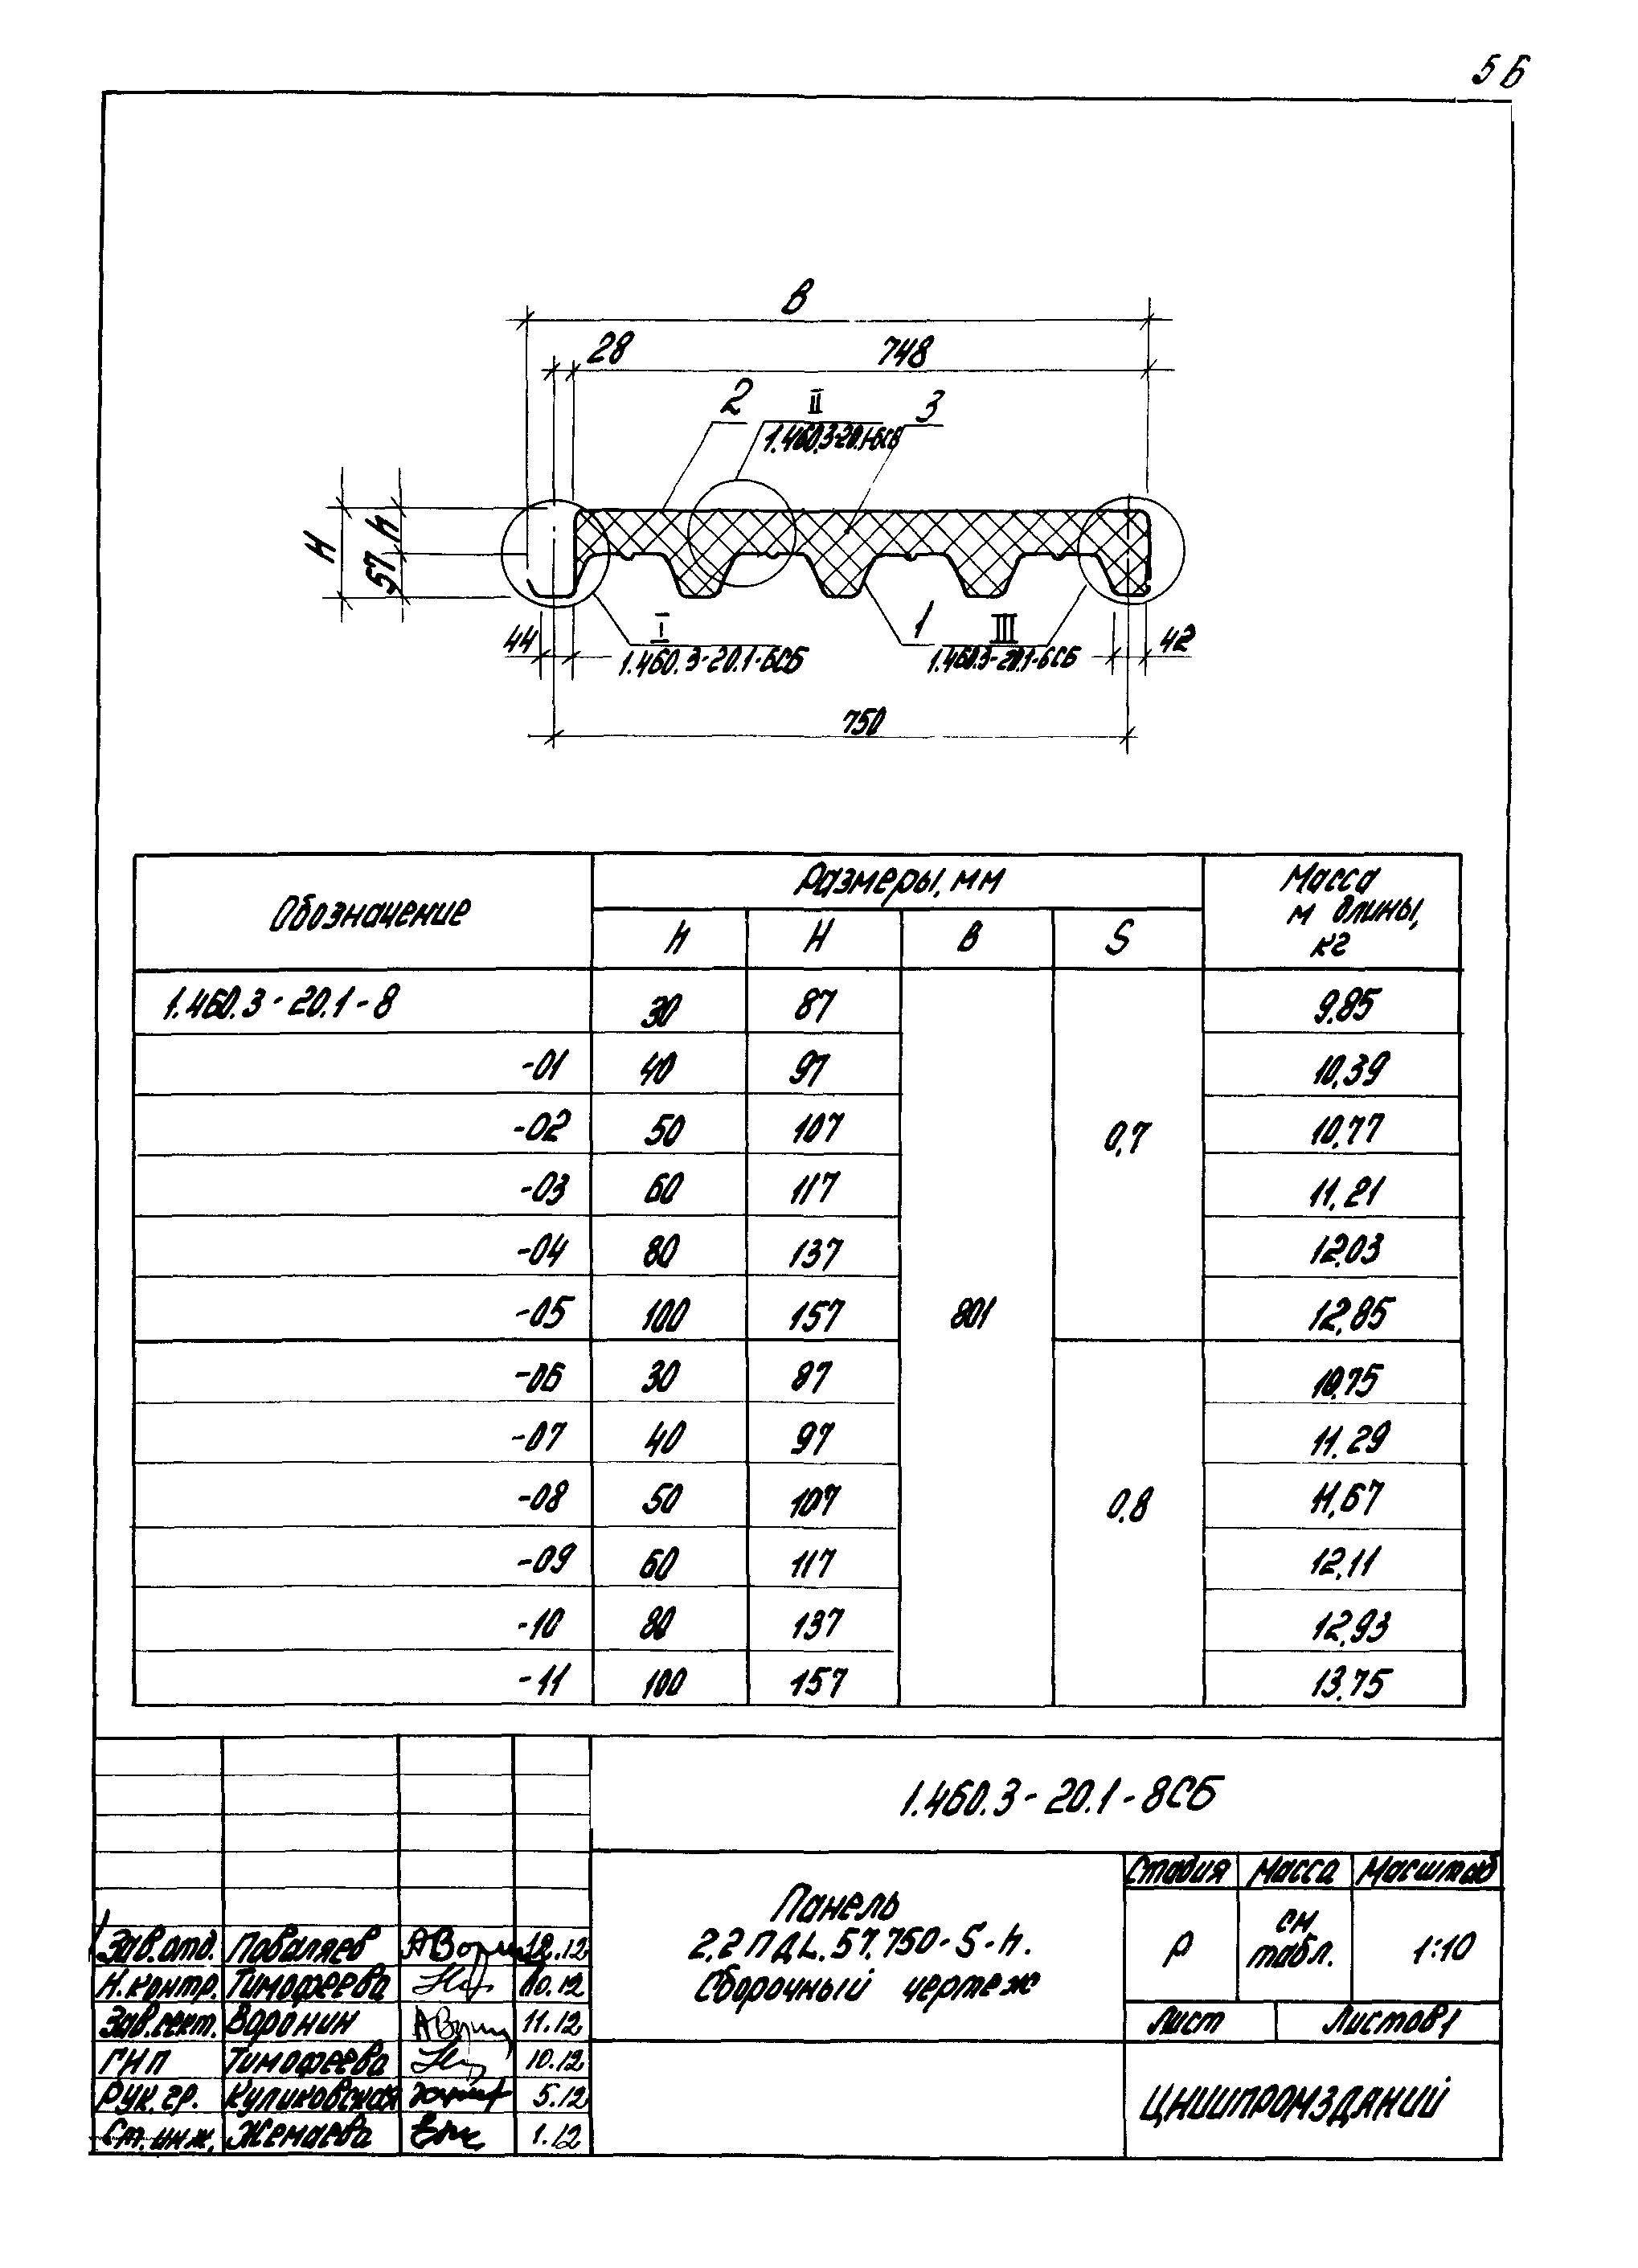 56
В
28 748
2 II 3
1.460.3-20.1-6СБ
H h 57
44 I 1 III 42
1.460.3-20.1-6СБ 1.460.3-20.1-6СБ
750
Обозначение Размеры, мм Масса м длины, кг
h H В S
1.460.3-20.1-8 30 87 9.85
-01 40 97 10,39
-02 50 107 0,7 10,77
-03 60 117 11,21
-04 80 137 12,03
-05 100 157 801 12,85
-06 30 87 10,75
-07 40 97 11.29
-08 50 107 0,8 11,67
-09 60 117 12,11
-10 80 137 12,93
-11 100 157 13.75
1.460.3-20.1-8СБ
Панель
2.2ПДL.57.750-S-h.
Сборочный чертеж
Стадия Масса Масштаб
Р см табл. 1:10
Лист Листов 1
ЦНИИПРОМЗДАНИЙ
Зав.отд. Поваляев 12.12
Н.контр. Тимофеева 10.12
Зав.сект. Воронин 11.12
ГИП Тимофеева 10.12
Рук.гр. Куликовская 5.12
Ст.инж. Жемаева 1.12